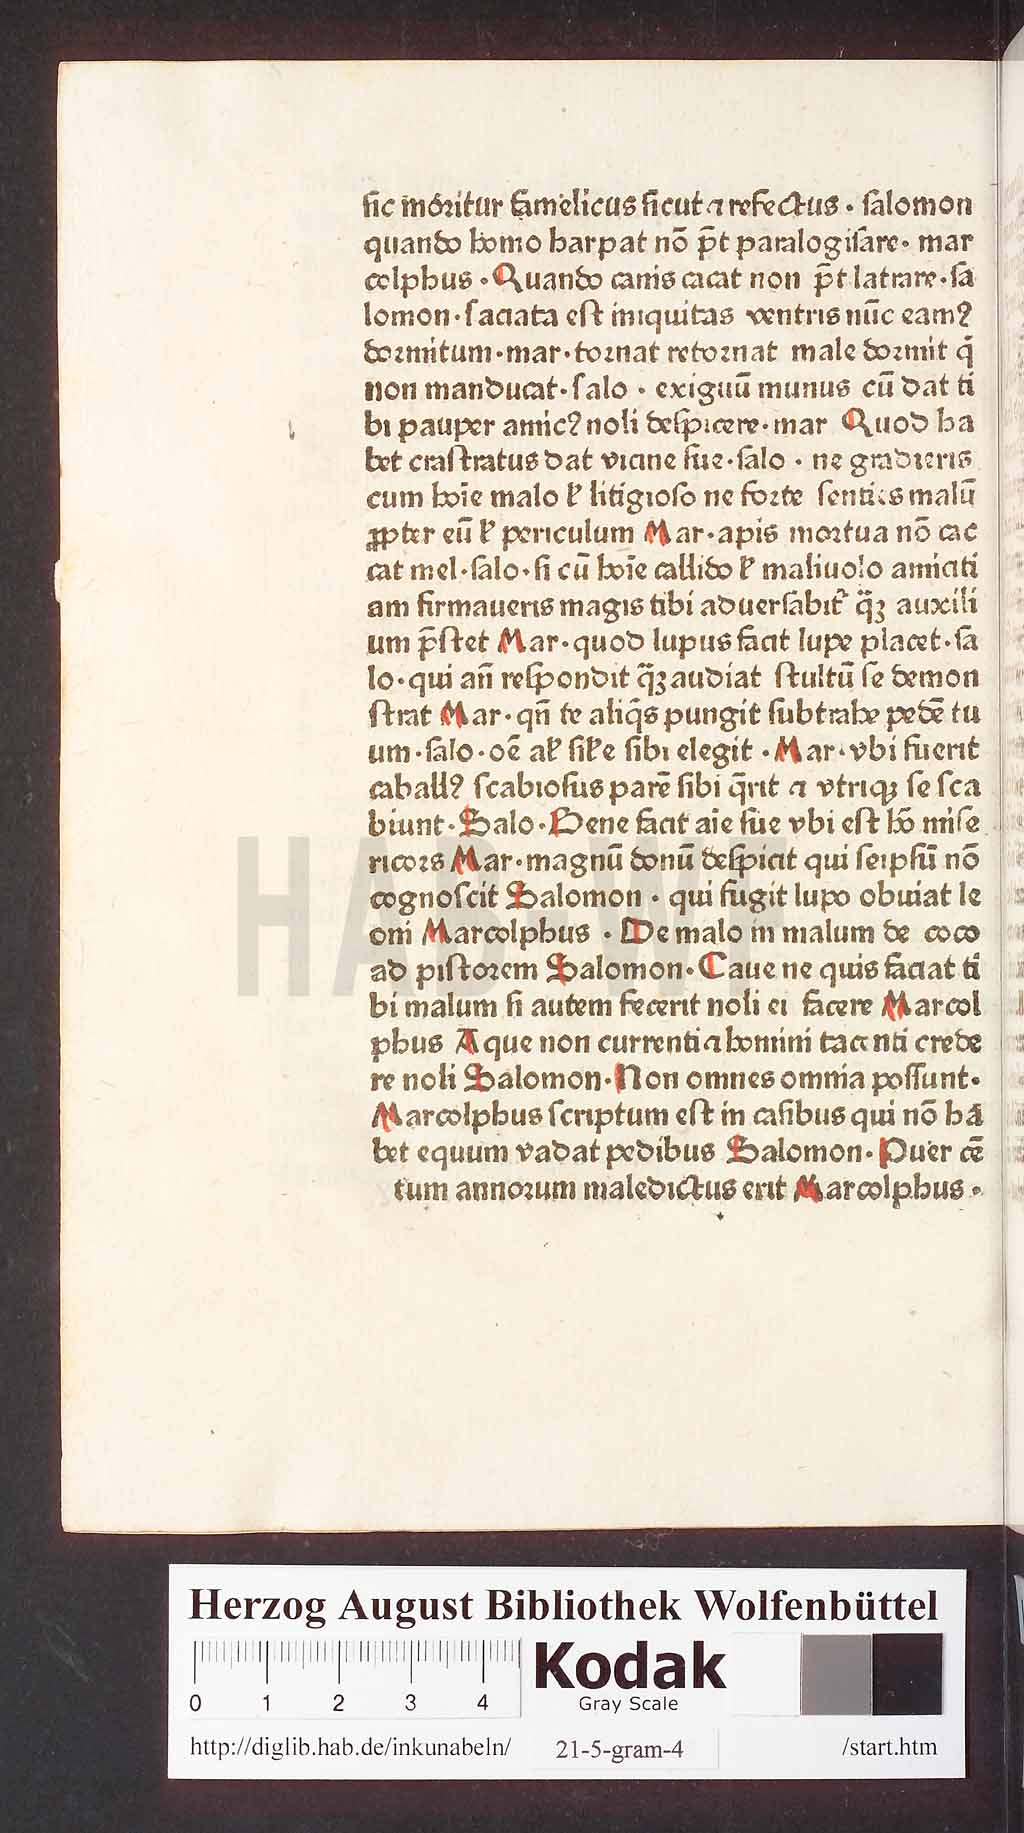 sic moritur famelicus sicut ⁊ refectus · salomon
quando homo harpat nō p̄t paralogisare · mar
colphus · Quando canis cacat non p̄t latrare · sa
lomon · saciata est iniquitas ventris nūc eamꝰ
dormitum · mar · tornat retornat male dormit q̄
non manducat · salo · exiguū munus cū dat ti
bi pauper amicꝰ noli despicere · mar Quod ha
bet crastratus dat vicine sue · salo · ne gradieris
cum hoīe malo ł litigioso ne forte senties malū
ꝓpter eū ł periculum Mar · apis mortua nō cac
cat mel · salo · si cū hoīe callido ł maliuolo amiciti
am firmaueris magis tibi aduersabit̉ q̄ꝫ auxili
um p̄stet Mar · quod lupus facit lupe placet · sa
lo · qui an̄ respondit q̄ꝫ audiat stultū se demon
strat Mar · qn̄ te aliq̄s pungit subtrahe pedē tu
um · salo · oē ał siłe sibi elegit · Mar · vbi fuerit
caballꝰ scabiosus parē sibi q̄rit ⁊ vtriqꝫ se sca
biunt · Salo · Bene facit aīe sue vbi est hō mise
ricors Mar · magnū donū despicit qui seipsū nō
cognoscit Salomon · qui fugit lupo obuiat le
oni Marcolphus · De malo in malum de coco
ad pistorem Salomon · Caue ne quis faciat ti
bi malum si autem fecerit noli ei facere Marcol
phus Aque non currenti ⁊ homini tacenti crede
re noli Salomon · Non omnes omnia possunt ·
Marcolphus scriptum est in casibus qui nō ha
bet equum vadat pedibus Salomon · Puer cē
tum annorum maledictus erit Marcolphus ·
HAB WF
Herzog August Bibliothek Wolfenbüttel
0 1 2 3 4
Kodak
Gray Scale
http://diglib.hab.de/inkunabeln/ 21-5-gram-4 /start.htm